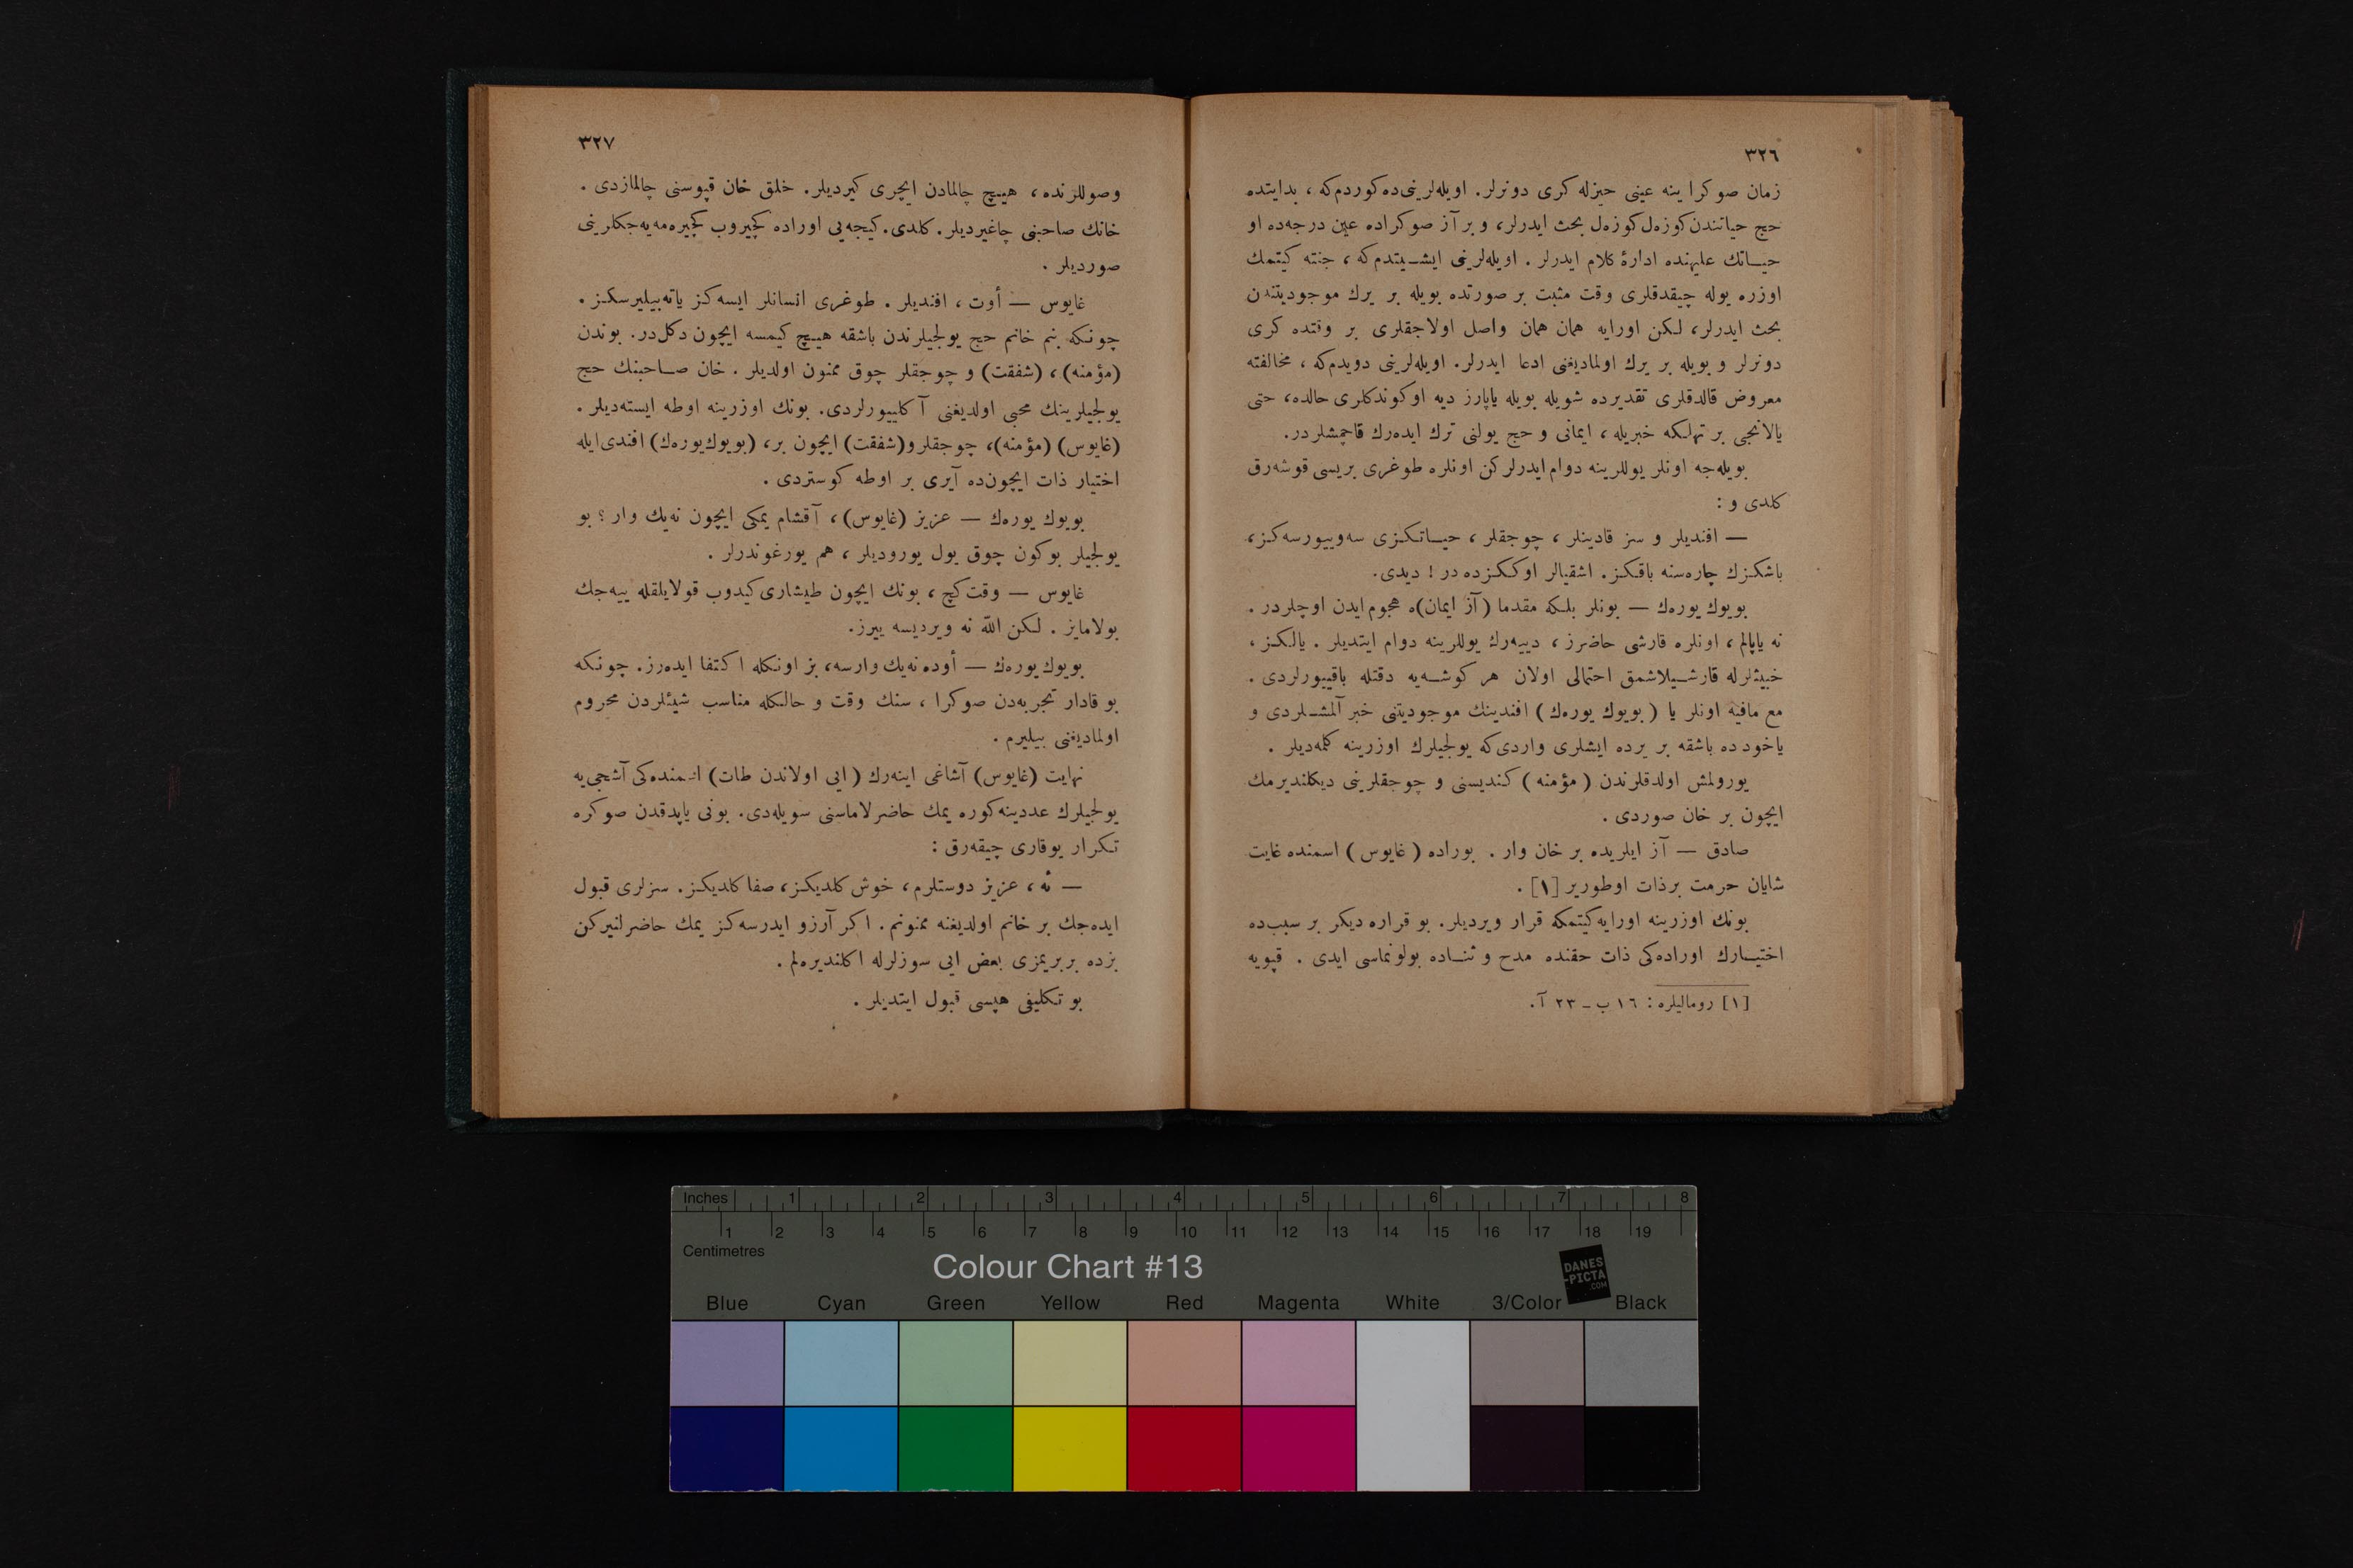 ٣٢٦
زمان صوكرا ینه عینی حیزله كری دونرلر. اویله‌لرینی‌ده كوردم‌كه ، بدایتده
حج حیاتندن كوزه‌ل كوزه‌ل بحث ایدرلر، و بر آز صوكراده عین درجه‌ده او
حیـاتك علیهنده ادارۀ كلام ایدرلر . اویله‌لرینی ایشـیتدم‌كه ، جنته كیتمك
اوزره یوله چیقدقلری وقت مثبت بر صورتده بویله بر یرك موجودیتندن
بحث ایدرلر، لـكن اورایه همان همان واصل اولاجقلری بر وقتده كری
دونرلر و بویله بر یرك اولمادیغنی ادعا ایدرلر. اویله‌لرینی دویدم‌كه ، مخالفته
معروض قالدقلری تقدیرده شویله بویله یاپارز دیه اوكوندكلری حالده، حتی
یالانجی بر تهلـكه خبریله ، ایمانی و حج یولنی ترك ایده‌رك قاچمشلردر.
بویله‌جه اونلر یوللرینه دوام ایدرلركن اونلره طوغری بریسی قوشه‌رق
كلدی و :
— افندیلر و سز قادینلر ، چوجقلر ، حیـاتـكـزی سه‌وییورسه‌كـز،
باشكـزك چاره‌سنه باقـكـز. اشقیالر اوكـكـزده در ! دیدی.
بویوك یوره‌ك — بونلر بلـكه مقدما (آز ایمان)ه هجوم ایدن اوچلردر .
نه یاپالم ، اونلره قارشی حاضرز ، دییه‌رك یوللرینه دوام ایتدیلر . یالـكـز ،
خبیثلرله قارشـیلاشمق احتمالی اولان هر كوشـه‌یه دقتله باقییورلردی .
مع مافیه اونلر یا (بویوك یوره‌ك) افندینك موجودیتنی خبر آلمشـلردی و
یاخود ده باشقه بر یرده ایشلری واردی‌كه یولجیلرك اوزرینه كلمه‌دیلر .
یورولمش اولدقلرندن (مؤمنه) كـندیسنی و چوجقلرینی دیكلندیرمك
ایچون بر خان صوردی .
صادق — آز ایلریده بر خان وار . بوراده (غایوس) اسمنده غایت
شایان حرمت برذات اوطوریر [١] .
بونك اوزرینه اورایه كیتمكه قرار ویردیلر. بو قراره دیكر بر سبب‌ده
اختیـارك اوراده‌كی ذات حقنده مدح و ثنـاده بولونماسی ایدی . قپویه
[١] رومالیلره : ١٦ ب ـ ٢٣ آ.
٣٢٧
وصوللرنده ، هیـچ چالمادن ایچری كیردیلر. خلق خان قپوسنی چالمازدی .
خانك صاحبنی چاغیردیلر. كلدی. كیجه‌یی اوراده كچیروب كچیره‌مه‌یه‌جكلرینی
صوردیلر .
غایوس — أوت ، افندیلر . طوغری انسانلر ایسه‌كز یاته‌بیلیرسكـز .
چونـكه بنم خانم حج یولجیلرندن باشقه هیـچ كیمسه ایچون دكل‌در. بوندن
(مؤمنه) ، (شفقت) و چوجقلر چوق ممنون اولدیلر . خان صـاحبنك حج
یولجیلرینك محبی اولدیغنی آكلییورلردی. بونك اوزرینه اوطه ایسته‌دیلر .
(غایوس) (مؤمنه)، چوجقلر و(شفقت) ایچون بر، (بویوك یوره‌ك) افندی‌ایله
اختیار ذات ایچون‌ده آیری بر اوطه كوستردی .
بویوك یوره‌ك — عزیز (غایوس) ، آقشام یمكی ایچون نه‌یك وار ؟ بو
یولجیلر بوكون چوق یول یورودیلر ، هم یورغوندرلر .
غایوس — وقت كچ ، بونك ایچون طیشاری كیدوب قولایلقله ییه‌جك
بولامایز . لـكن اللّه نه ویردیسه ییرز.
بویوك یوره‌ك — أوده نه‌یك وارسه، بز اونـكله اكتفا ایده‌رز. چونـكه
بو قادار تجربه‌دن صوكرا ، سنك وقت و حالـكله مناسب شیئلردن محروم
اولمادیغنی بیلیرم .
نهایت (غایوس) آشاغی اینه‌رك (ایی اولاندن طات) اسمنده‌كی آشجی‌یه
یولجیلرك عددینه كوره یمك حاضرلاماسنی سویله‌دی. بونی یاپدقدن صوكره
تـكرار یوقاری چیقه‌رق :
— ئه ، عزیز دوستلرم ، خوش كلدیكـز ، صفا كلدیكـز . سزلری قبول
ایده‌جك بر خانم اولدیغنه ممنونم. اكر آرزو ایدرسه‌كـز یمك حاضرلنیركن
بزده بربریمزی بعض ایی سوزلرله اكلندیره‌لم .
بو تـكلیفی هپسی قبول ایتدیلر .
Inches 1 2 3 4 5 6 7 8
1 2 3 4 5 6 7 8 9 10 11 12 13 14 15 16 17 18 19
Centimetres
Colour Chart #13
DANES
-PICTA
.COM
Blue Cyan Green Yellow Red Magenta White 3/Color Black